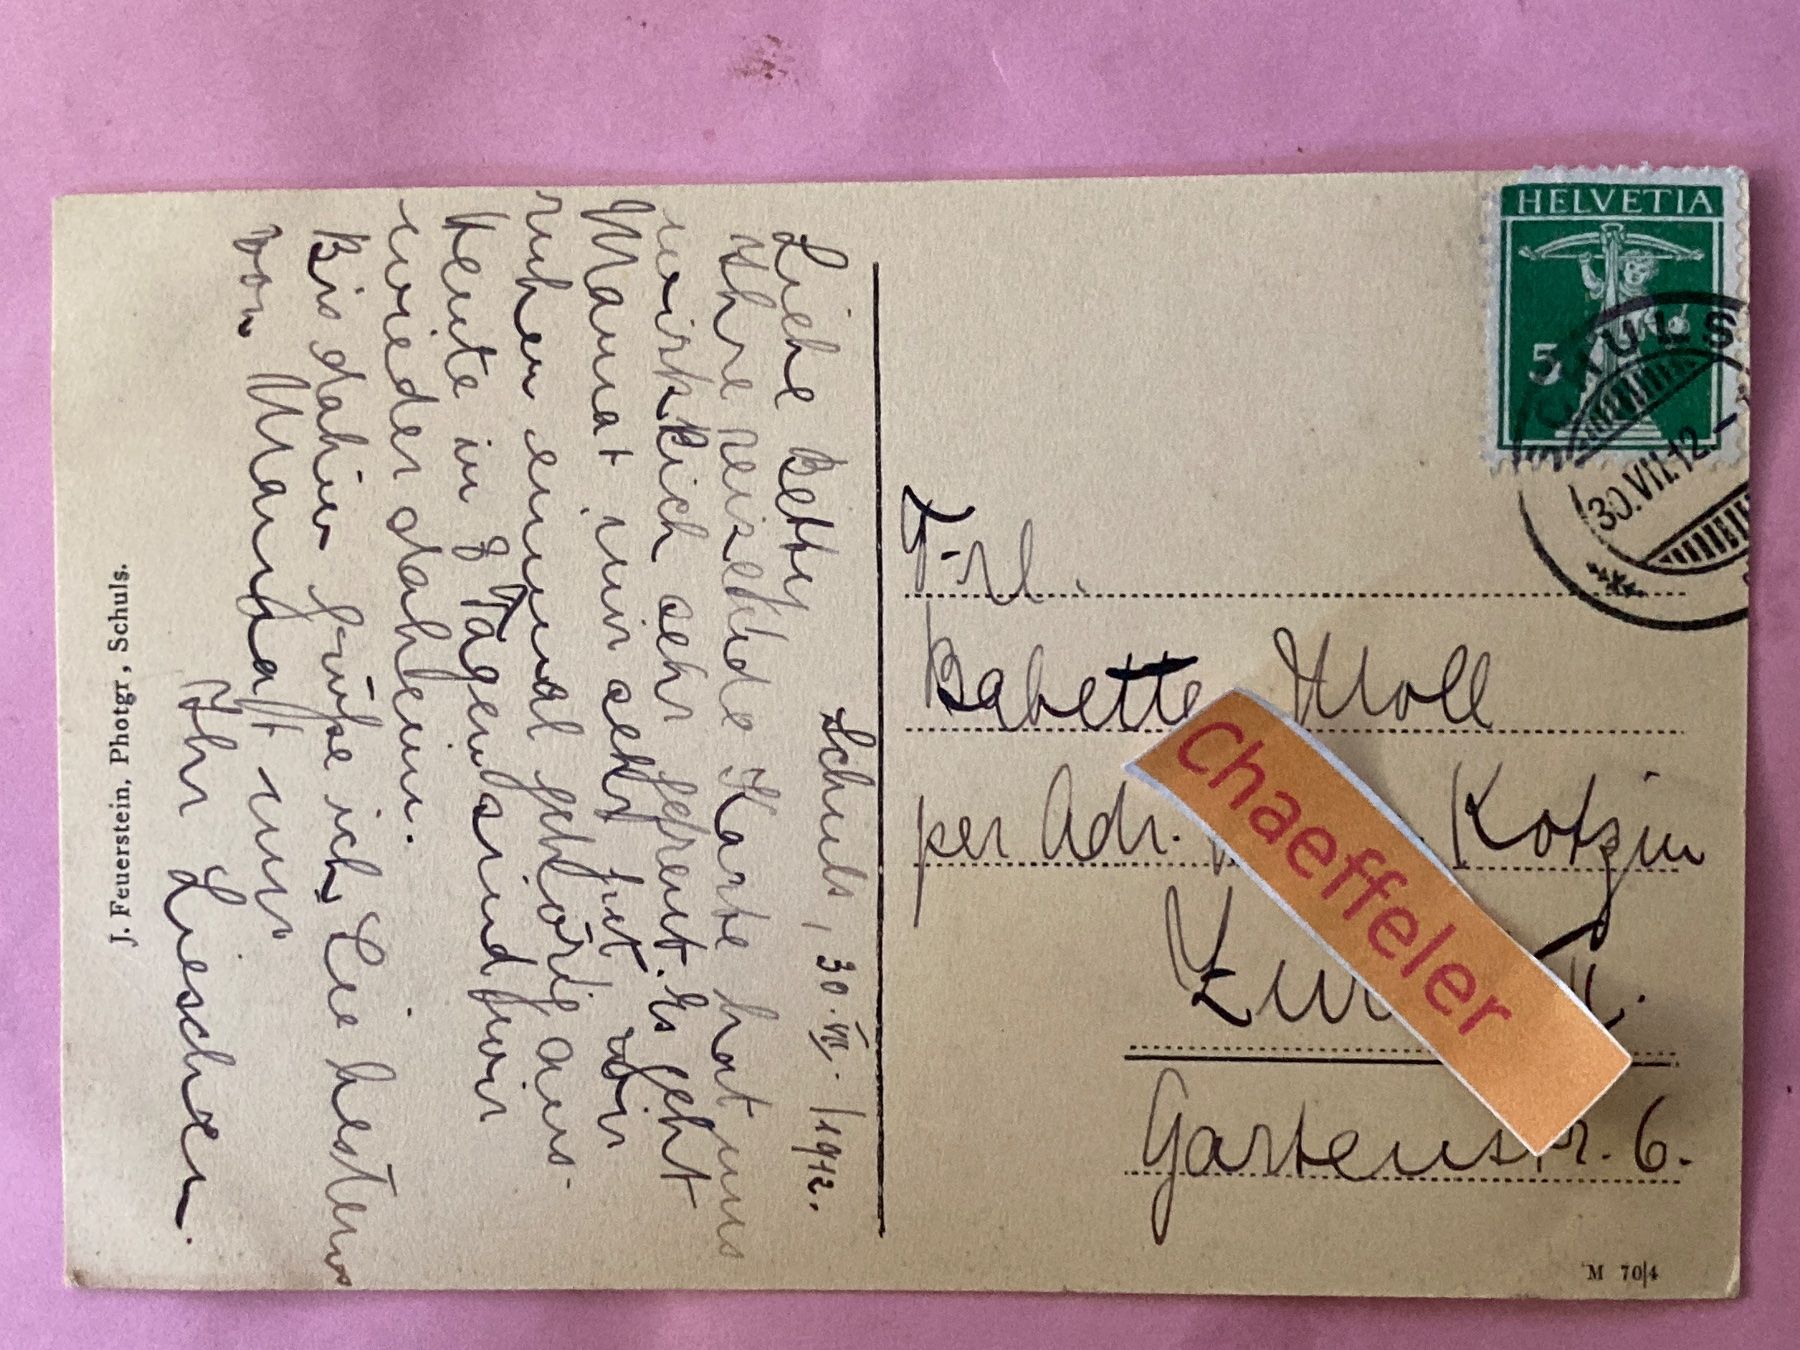 Schuls, 30. VII. 1912.
Liebe Betty
Ihre reizende Karte hat uns
wirklich sehr gefreut. Es geht
Mama t nur sehr gut wir
ruhen einmal gehörig aus.
Heute in 8 Tagen sind wir
wieder daheim.
Bis dahin grüße ich Sie bestens
von
Ihr Lieschen.
J. Feuerstein, Photgr, Schuls.
HELVETIA
5
SCHULS
30.VII.12.-
Frl.
Babette Moll
per Adr. Kotzin
Chaeffeler
Gartenstr. 6.
M 70|4